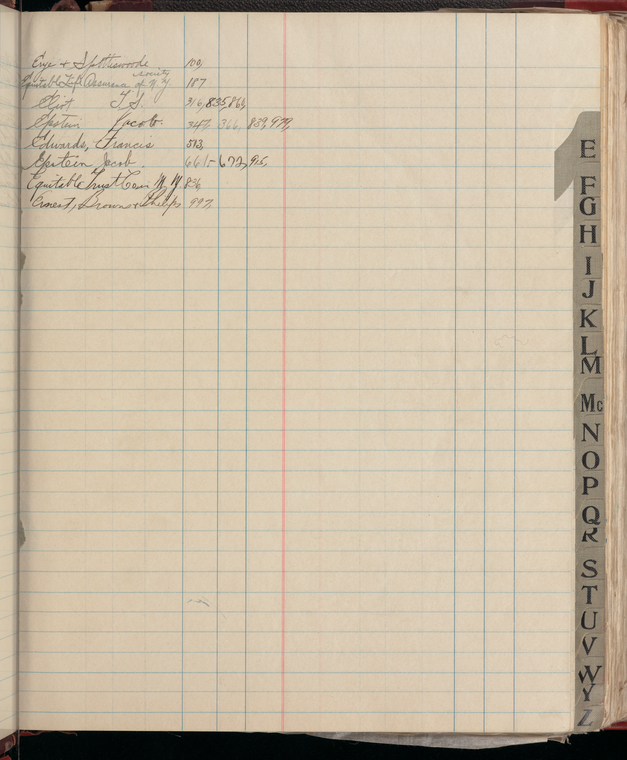 Eyre & Spottiswoode 100,
Equitable Life Assurance Society of N.Y. 187
Eliot T.S. 316, 835, 868,
Epstein Jacob. 347, 366, 839, 979,
Edwards, Francis 513,
Epstein Jacob. 661-672, 915,
Equitable Trust Co. N.Y. 836,
Ernest, Brown & Phillips 997,
E
F
G
H
I
J
K
L
M
Mc
N
O
P
Q
R
S
T
U
V
W
Y
Z